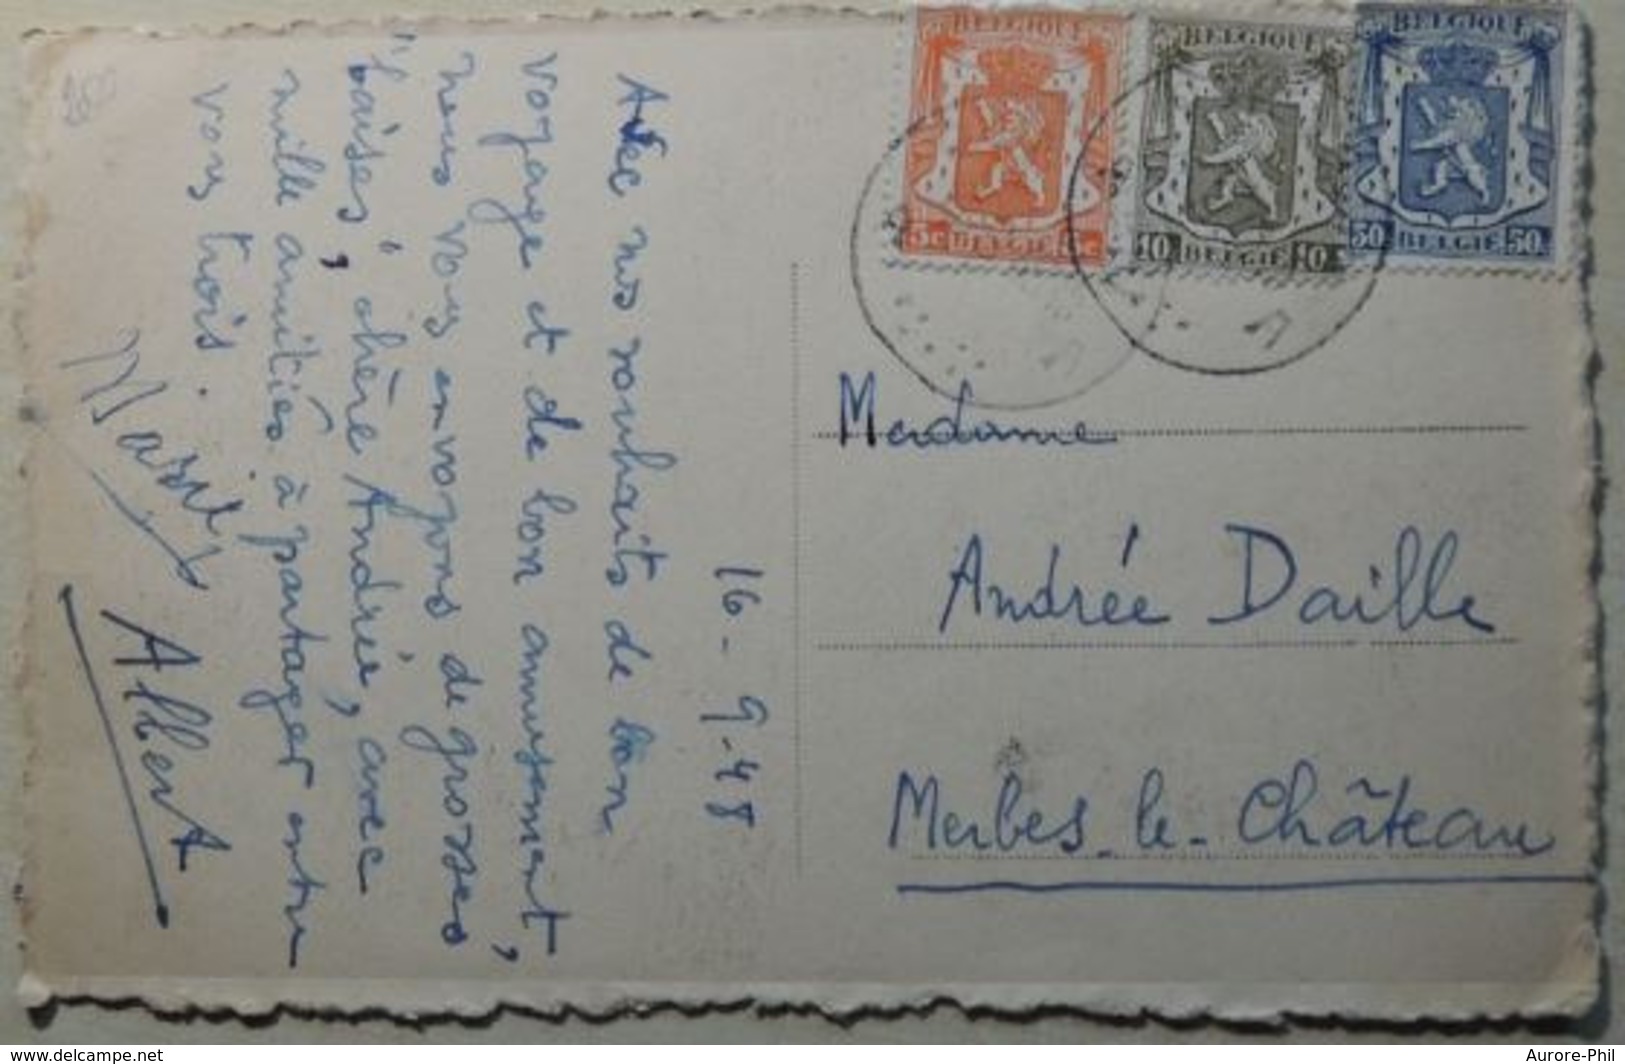 16-9-48
Avec nos souhaits de bon
voyage et de bon amusement,
nous vous envoyons de grosses
"baises", chère Andrée, avec
mille amitiés à partager entre
vous trois.
Albert
BELGIQUE
5c BELGIË 5c
BELGIQUE
10 BELGIË 10
BELGIQUE
50 BELGIË 50
Madame
Andrée Daille
Merbes-le-Château
https://www.delcampe.net
Aurore-Phil